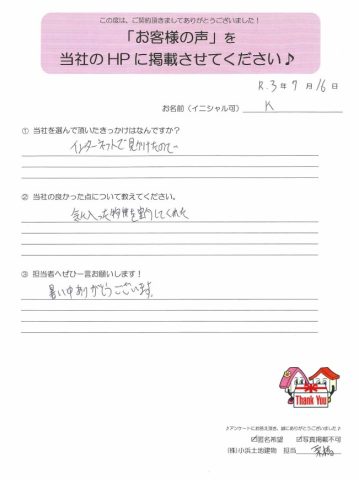 この度は、ご契約頂きましてありがとうございました！
「お客様の声」を
当社のHPに掲載させてください♪
R.3年7月16日
お名前（イニシャル可） K
① 当社を選んで頂いたきっかけはなんですか？
インターネットで見かけたので
② 当社の良かった点について教えてください。
気に入った物件を紹介してくれた
③ 担当者へぜひ一言お願いします！
暑い中ありがとうございます。
Thank You
♪アンケートにお答え頂き、誠にありがとうございました♪
☑匿名希望 ☑写真掲載不可
(株)小浜土地建物 担当